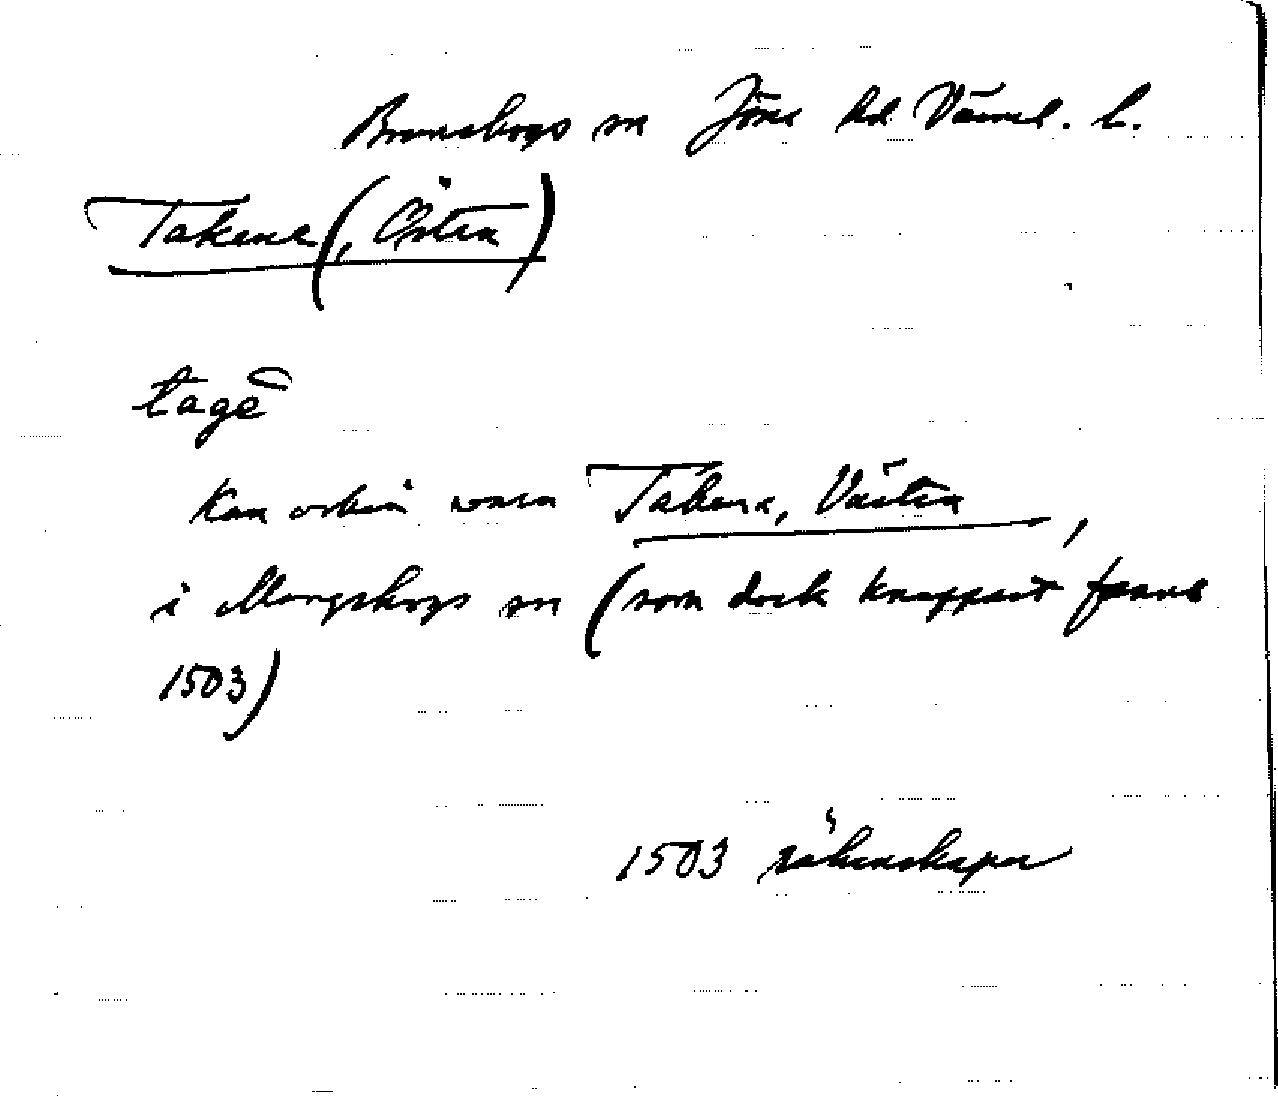 Brunskogs sn Jösse hd Värml. l.
Takene (, Östra)
tagē
Kan också vara Takene, Västra,
i Mangskogs sn (som dock knappast fanns
1503)
1503 räkenskaper